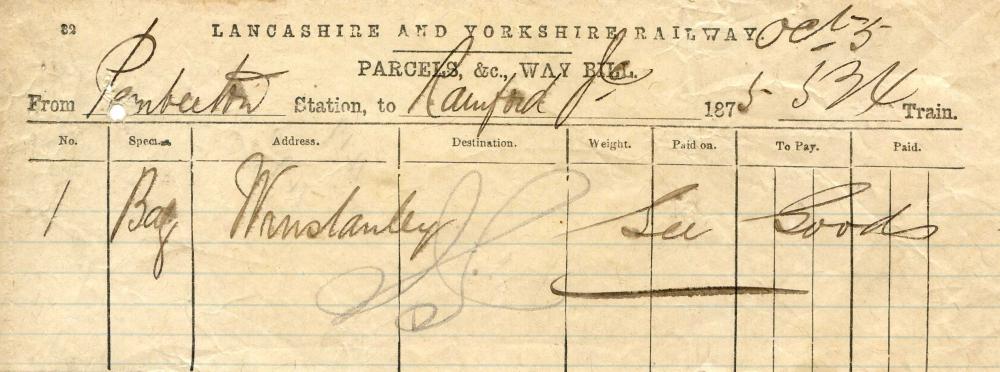 32 LANCASHIRE AND YORKSHIRE RAILWAY. Oct 5
PARCELS, &c., WAY BILL.
From Pemberton Station, to Rainford Jc 1875 Train.
No. Speci Address. Destination. Weight. Paid on. To Pay. Paid.
1 Bag Winstanley See Goods